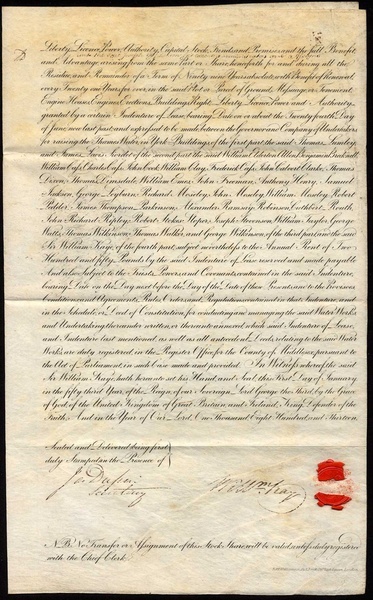 Liberty, Licence, Power, Authority, Capital Stock, Funds and Premises and the full Benefit
and Advantage arising from the same Part or Share, henceforth for and during all the
Residue and Remainder of a Term of Ninety nine Years absolute, with Benefit of Renewal
every Twenty one Years for ever, in the said Plot or Parcel of Ground, Messuage or Tenement,
Engine House, Engines, Erections, Buildings, Right, Liberty, Licence, Power and Authority,
granted by a certain Indenture of Lease, bearing Date on or about the Twenty fourth Day
of June now last past, and expressed to be made between the Governor and Company of Undertakers
for raising the Thames Water in York Buildings of the first part, the said Thomas
and James of the second part, the said William
William Cass, Charles Cass, John William Cass, George Frederick Cass, John Calvert Clarke, Thomas
Dixon, Thomas William Eames, John Freeman, Anthony Henry, Samuel
Jackson, George John Mosley, William Mosley, Robert
Pulder, James Thompson Parkinson, Alexander Ramsay Robinson, Cuthbert Routh,
John Richard Ripley, Robert Stokes, Joseph Stevenson, William Taylor, George
Watts, Thomas Wilkinson, Thomas Walker, and George Wilkinson, of the third part, and the said
Sir William Kaye, of the fourth part, subject nevertheless to the Annual Rent of Two
Hundred and fifty Pounds by the said Indenture of Lease reserved and made payable
And also Subject to the Trusts, Powers, and Covenants contained in the said Indenture,
bearing Date on the Day next before the Day of the Date of these Presents and to the Provisoes
Conditions and Agreements, Rules, Orders and Regulations contained in that Indenture, and
in the Schedule, or Deed of Constitution for conducting and managing the said Water Works
and Undertaking thereunder written, or thereunto annexed which said Indenture of Lease,
and Indenture last mentioned, as well as all antecedent Deeds, relating to the said Water
Works are duly registered in the Register Office for the County of Middlesex pursuant to
the Act of Parliament, in such Case made and provided. In Witness whereof the said
Sir William Kaye, hath hereunto set his Hand and Seal, this First Day of January
in the fifty third Year of the Reign of our Sovereign Lord George the third, by the Grace
of God, of the United Kingdom of Great Britain and Ireland, King, Defender of the
Faith, And in the Year of our Lord One Thousand Eight Hundred and Thirteen
Sealed and Delivered being first
duly Stamped in the Presence of
Secretary
N.B. No Transfer or Assignment of this Stock or Share, will be valid, unless duly registered
with the Chief Clerk.